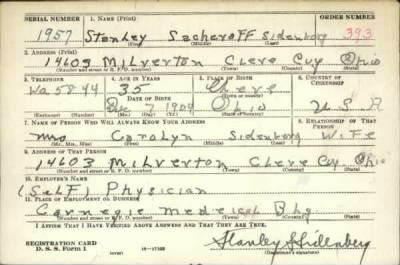 SERIAL NUMBER 1. NAME (Print) ORDER NUMBER
1957 Stanley Sacheroff Sidenberg 393
(First) (Middle) (Last)
2. ADDRESS (Print)
14603 Milverton Cleve Cuy Ohio
(Number and street or R. F. D. number) (Town) (County) (State)
3. TELEPHONE 4. AGE IN YEARS 5. PLACE OF BIRTH 6. COUNTRY OF CITIZENSHIP
Wa 5844 35 Cleve
DATE OF BIRTH
Dec 7 1904 Ohio U S A
(Exchange) (Number) (Mo.) (Day) (Yr.) (State or country)
7. NAME OF PERSON WHO WILL ALWAYS KNOW YOUR ADDRESS 8. RELATIONSHIP OF THAT PERSON
Mrs Carolyn Sidenberg Wife
(Mr., Mrs., Miss) (First) (Middle) (Last)
9. ADDRESS OF THAT PERSON
14603 Milverton Cleve Cuy Ohio
(Number and street or R. F. D. number) (Town) (County) (State)
10. EMPLOYER'S NAME
(Self) Physician
11. PLACE OF EMPLOYMENT OR BUSINESS
Carnegie Medical Blg
(Number and street or R. F. D. number) (Town) (County) (State)
I AFFIRM THAT I HAVE VERIFIED ABOVE ANSWERS AND THAT THEY ARE TRUE.
REGISTRATION CARD
D. S. S. Form 1 16—17105 Stanley S Sidenberg
(Registrant's signature)